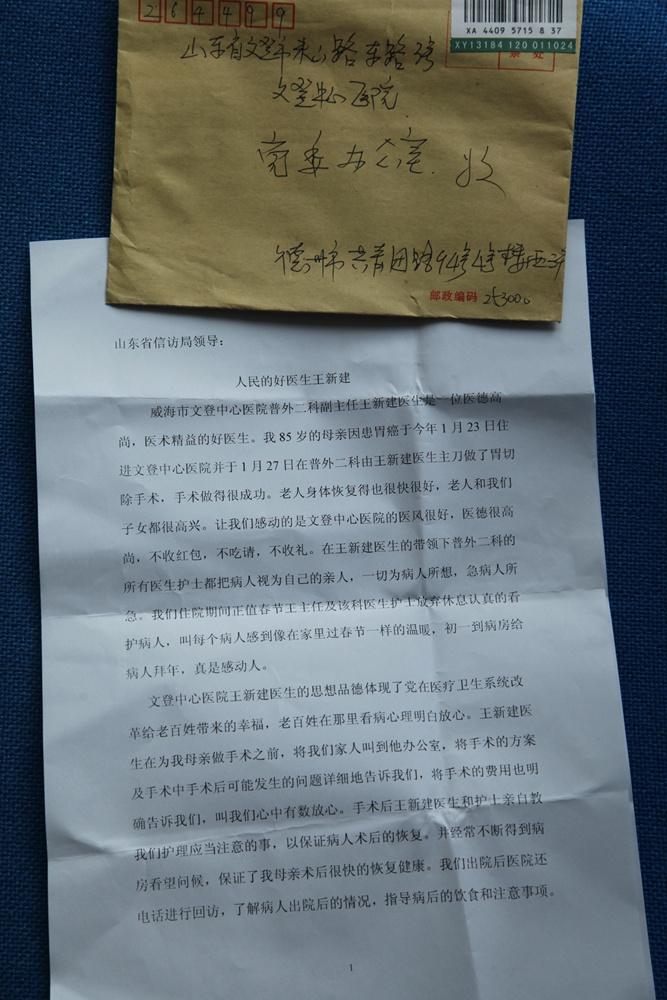 264499
XA 4409 5715 8 37
XY13184 120 011024
山东省文登市米山路东路3号
文登中心医院
党委办公室 收
德州市共青团路94号4号楼西
邮政编码 253000
山东省信访局领导：
人民的好医生王新建
威海市文登中心医院普外二科副主任王新建医生是一位医德高
尚，医术精益的好医生。我 85 岁的母亲因患胃癌于今年 1 月 23 日住
进文登中心医院并于 1 月 27 日在普外二科由王新建医生主刀做了胃切
除手术，手术做得很成功。老人身体恢复得也很快很好，老人和我们
子女都很高兴。让我们感动的是文登中心医院的医风很好，医德很高
尚，不收红包，不吃请，不收礼。在王新建医生的带领下普外二科的
所有医生护士都把病人视为自己的亲人，一切为病人所想，急病人所
急。我们住院期间正值春节王主任及该科医生护士放弃休息认真的看
护病人，叫每个病人感到像在家里过春节一样的温暖，初一到病房给
病人拜年，真是感动人。
文登中心医院王新建医生的思想品德体现了党在医疗卫生系统改
革给老百姓带来的幸福，老百姓在那里看病心理明白放心。王新建医
生在为我母亲做手术之前，将我们家人叫到他办公室，将手术的方案
及手术中手术后可能发生的问题详细地告诉我们，将手术的费用也明
确告诉我们，叫我们心中有数放心。手术后王新建医生和护士亲自教
我们护理应当注意的事，以保证病人术后的恢复。并经常不断得到病
房看望问候，保证了我母亲术后很快的恢复健康。我们出院后医院还
电话进行回访，了解病人出院后的情况，指导病后的饮食和注意事项。
1